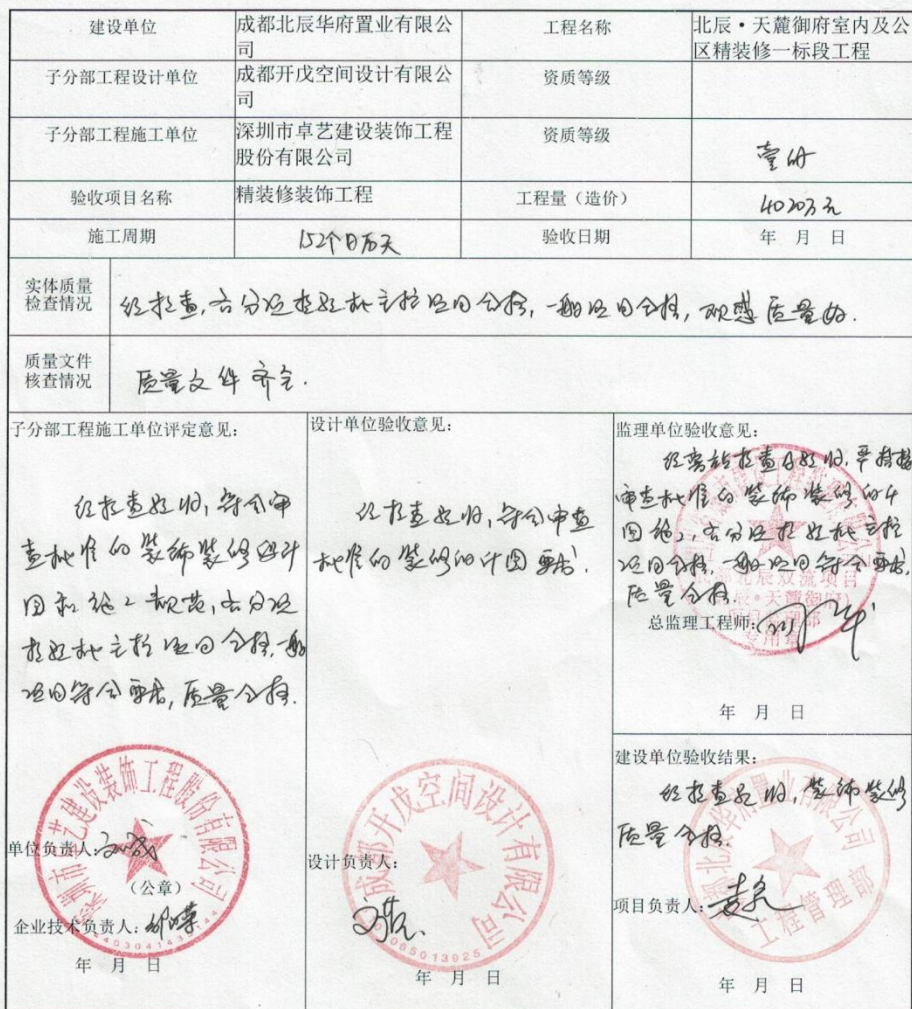 建设单位
成都北辰华府置业有限公
司
工程名称
北辰·天麓御府室内及公
区精装修一标段工程
子分部工程设计单位
成都开戊空间设计有限公
司
资质等级
子分部工程施工单位
深圳市卓艺建设装饰工程
股份有限公司
资质等级
壹级
验收项目名称
精装修装饰工程
工程量（造价）
4020万元
施工周期
152个日历天
验收日期
年 月 日
实体质量
检查情况
经检查,各分项检验批主控项目合格,一般项目合格,观感质量好.
质量文件
核查情况
质量文件齐全.
子分部工程施工单位评定意见:
经检查验收,符合审
查批准的装饰装修设计
图和施工规范,各分项
检验批主控项目合格,一般
项目符合要求,质量合格.
深圳市卓艺建设装饰工程股份有限公司
单位负责人:
（公章）
企业技术负责人:
年 月 日
设计单位验收意见:
经检查验收,符合审查
批准的装修设计图要求.
成都开戊空间设计有限公司
设计负责人:
年 月 日
监理单位验收意见:
经旁站检查及验收,严格按
审查批准的装饰装修设计
图施工,各分项检验批主控
项目合格,一般项目符合要求,
质量合格.
成都北辰双流项目
天麓御府
专用章
总监理工程师:
年 月 日
建设单位验收结果:
经检查验收,装饰装修
质量合格.
工程管理部
项目负责人:
年 月 日